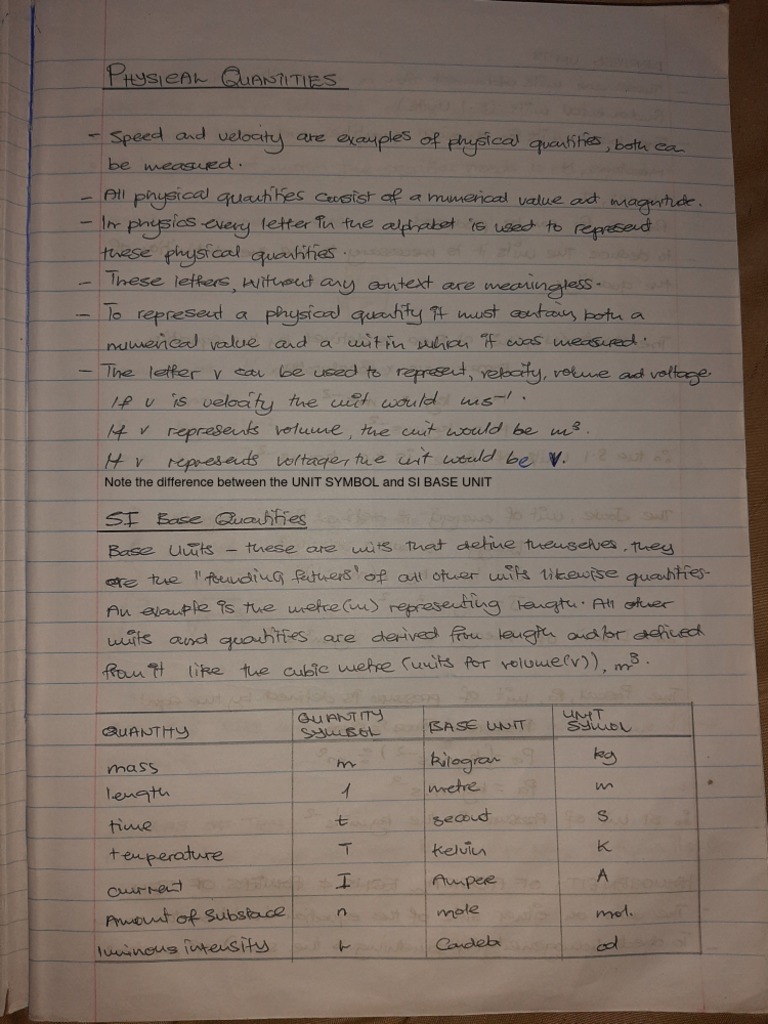 PHYSICAL QUANTITIES
- Speed and velocity are examples of physical quantities, both can
be measured.
- All physical quantities consist of a numerical value and magnitude.
- In physics every letter in the alphabet is used to represent
these physical quantities.
- These letters, without any context are meaningless.
- To represent a physical quantity it must contain, both a
numerical value and a unit in which it was measured.
- The letter v can be used to represent, velocity, volume and voltage.
If v is velocity the unit would ms⁻¹.
If v represents volume, the unit would be m³.
If v represents voltage, the unit would be V.
Note the difference between the UNIT SYMBOL and SI BASE UNIT
SI Base Quantities
Base Units - these are units that define themselves, they
are the "founding fathers" of all other units likewise quantities.
An example is the metre (m) representing length. All other
units and quantities are derived from length and/or defined
from it like the cubic metre (units for volume (v)), m³.
QUANTITY QUANTITY SYMBOL BASE UNIT UNIT SYMBOL
mass m kilogram kg
length l metre m
time t second s
temperature T Kelvin K
current I Ampere A
Amount of Substance n mole mol.
luminous intensity Candela cd